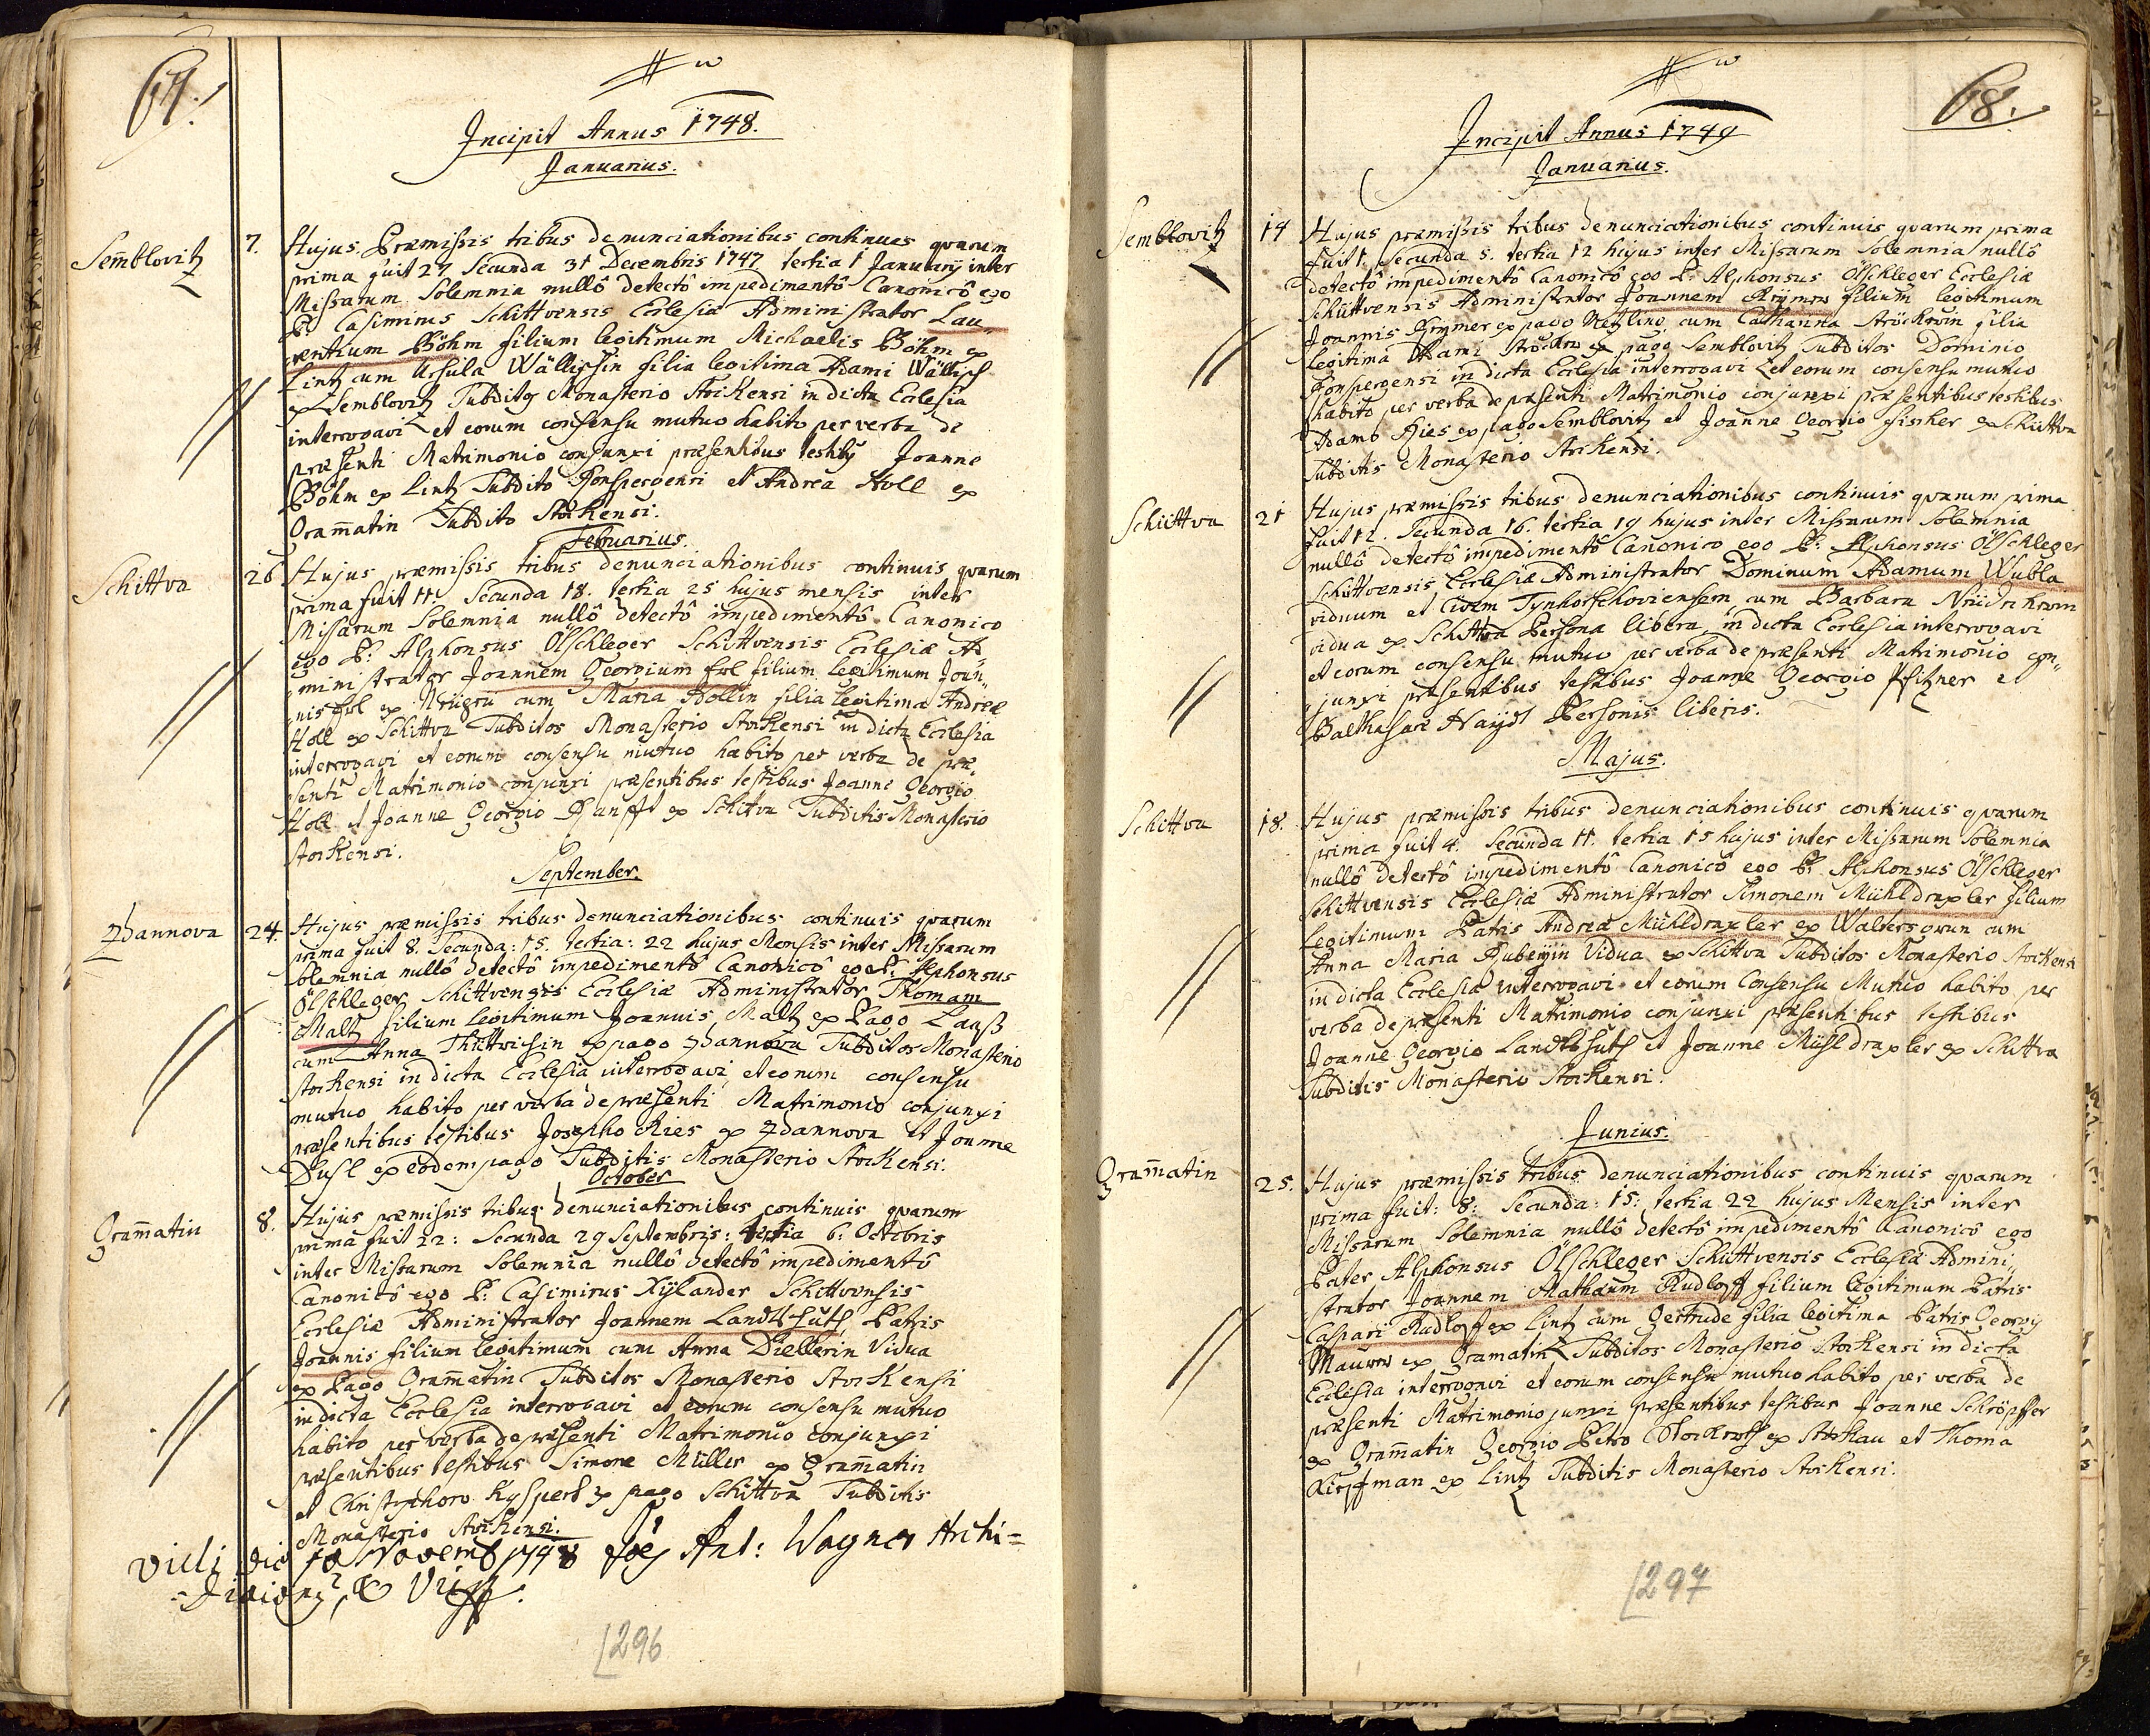 67.
Incipit Annus 1748.
Januarius.
Semblovitz
7.
Hujus. Præmissis tribus denunciationibus continues quarum
prima fuit 27 Secunda 31 Decembris 1747 tertia 1 Januarij inter
Missarum Solemnia nullô detectô impedimentô Canonicô ego
P. Casimirus Schittvensis Ecclesiæ Administrator Lau„
„rentium Böhm filium legitimum Michaelis Böhm ex
Lintz cum Ursula Wällischin filia legitima Adami Wällisch
ex Semblovitz Subditos Monasterio Stockensi in dicta Ecclesia
interrogavi et eorum consensu mutuo habito per verba de
præsenti Matrimonio conjunxi præsentibus testibus Joanne
Böhm ex Lintz Subdito Ronspergensi et Andrea Stoll ex
Gram̄atin Subdito Stockensi.
Februarius.
Schittva
26
Hujus præmissis tribus denunciationibus continuis quarum
prima fuit 11. Secunda 18. tertia 25 hujus mensis inter
Missarum Solemnia nullô detectô impedimentô Canonico
ego P. Alphonsus Ölschleger Schittvensis Ecclesiæ Ad„
„ministrator Joannem Georgium Erl filium legitimum Joan„
„nis Erl ex cum Maria Hollin filia legitima Andreæ
Holl ex Schittva Subditos Monasterio Stockensi in dicta Ecclesia
interrogavi et eorum consensu mutuo habito per verba de præ„
senti Matrimonio conjunxi præsentibus testibus Joanne Georgio
Holl et Joanne Georgio ex Schittva Subditis Monasterio
Stockensi.
September.
Zhannova
24.
Hujus præmissis tribus denunciationibus continuis quarum
prima fuit 8. Secunda: 15. tertia: 22 hujus Mensis inter Missarum
Solemnia nullô detectô impedimentô Canonicô ego P. Alphonsus
Ölschleger Schittvensis Ecclesiæ Administrator Thomam
Maltz filium legitimum Joannis Maltz ex Pago
cum Anna ex pago Zhannova Subditos Monasterio
Stockensi in dicta Ecclesia interrogavi et eorum consensu
mutuo habito per verba de præsenti Matrimonio conjunxi
præsentibus testibus Josepho Ries ex Zdannova et Joanne
ex eodem pago Subditis Monasterio Stockensi.
October
Gram̄atin
8.
Hujus præmissis tribus denunciationibus continuis quarum
prima fuit 22: Secunda 29 Septembris: tertia 6: Octobris
inter Missarum Solemnia nullô detectô impedimentô
Canonicô ego P. Casimirus Xÿlander Schittvensis
Ecclesiæ Administrator Joannem Landts Hutl Patris
Joannis filium legitimum cum Anna Diellerin Vidua
ex Pago Gram̄atin Subditos Monasterio Stockensi
in dicta Ecclesia interrogavi et eorum consensu mutuo
habito per verba de præsenti Matrimonio conjunxi
præsentibus testibus Simone Müller ex Gram̄atin
et Christophoro ex pago Schittva Subditis
Monasterio Stockensi.
Vidi die 10 Novemb 1748 Joēs Ant: Wagner Archi=
=Diaconus
296
68.
Incipit Annus 1749
Januarius.
Semblovitz
14
Hujus præmissis tribus denunciationibus continuis quarum prima
fuit 1. Secunda 5. tertia 12 hujus inter Missarum Solemnia nullô
detectô impedimentô Canonicô ego P. Alphonsus Ölschleger Ecclesiæ
Schüttvensis Administrator Joannem filium legitimum
Joannis ex pago Metzling cum Catharina Stöckerin filia
legitima Adami Stöcker ex pago Semblovitz Subditos Dominio
Ronspergensi in dicta Ecclesia interrogavi et eorum consensu mutuo
habito per verba de præsenti Matrimonio conjunxi præsentibus testibus
Adamo Ries ex pago Semblovitz et Joanne Georgio Fischer ex Schittva
Subditis Monasterio Stockensi.
Schüttva
21
Hujus præmissis tribus denunciationibus continuis quarum prima
fuit 12. Secunda 16. tertia 19 hujus inter Missarum Solemnia
nullô detectô impedimentô Canonico ego P. Alphonsus Ölschleger
Schüttvensis Ecclesiæ Administrator Dominum Adamum Wubla
viduum et Civem Tynhorschoviensem cum Barbara
vidua ex Schittva Persona libera, in dicta Ecclesia interrogavi
et eorum consensu mutuo per verba de præsenti Matrimonio con„
„junxi præsentibus testibus Joanne Georgio Pfitzner et
Balthasare Haÿdl Personis liberis.
Majus.
Schittva
18.
Hujus præmissis tribus denunciationibus continuis quarum
prima fuit 4. Secunda 11. tertia 15 hujus inter Missarum Solemnia
nullô detectô impedimentô Canonicô ego P. Alphonsus Ölschleger
Schittvensis Ecclesiæ Administrator Simonem Mühldraxler filium
legitimum Patris Andreæ Mühldraxler ex Waltersgrun cum
Anna Maria Vidua ex Schittva Subditos Monasterio Stockensi
in dicta Ecclesia interrogavi et eorum Consensu Mutuo habito per
verba de præsenti Matrimonio conjunxi præsentibus testibus
Joanne Georgio Landts Hutl et Joanne Mühldraxler ex Schittva
Subditis Monasterio Stockensi.
Junius.
Gram̄atin
25.
Hujus præmissis tribus denunciationibus continuis quarum
prima fuit: 8: Secunda: 15: tertia 22 hujus Mensis inter
Missarum Solemnia nullô detectô impedimentô Canonicô ego
Pater Alphonsus Ölschleger Schüttvensis Ecclesiæ Admini„
strator Joannem Mathæum Rudloff filium legitimum Patris
Caspari Rudloff ex Lintz cum Gertrude filia legitima Patris Georgij
Maurer ex Gramatin Subditos Monasterio Stockensi in dicta
Ecclesia interrogavi et eorum consensu mutuo habito per verba de
præsenti Matrimonio junxi præsentibus testibus Joanne Schröpffer
ex Gram̄atin Georgio Petro ex Stockau et Thoma
ex Lintz Subditis Monasterio Stockensi.
297